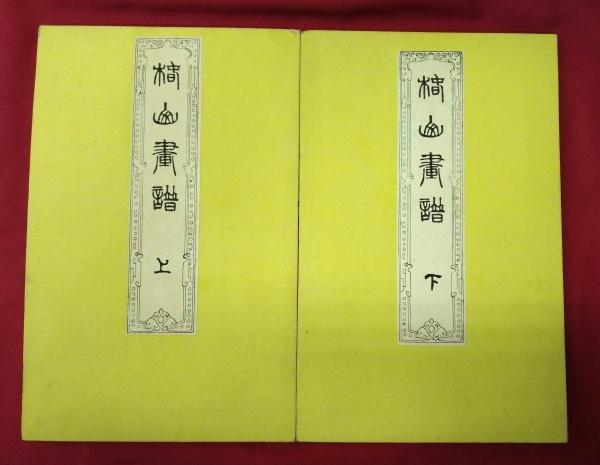 椿山畫譜 上
椿山畫譜 下